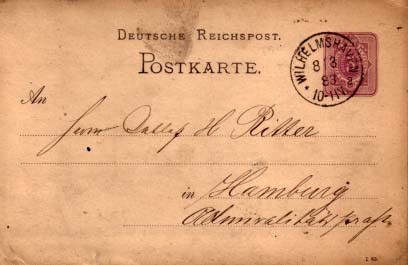 DEUTSCHE REICHSPOST.
POSTKARTE.
WILHELMSHAVEN
8 3
83
10-11N
An
Herrn Detlef H Ritter
in Hamburg
Admiralitätstraße